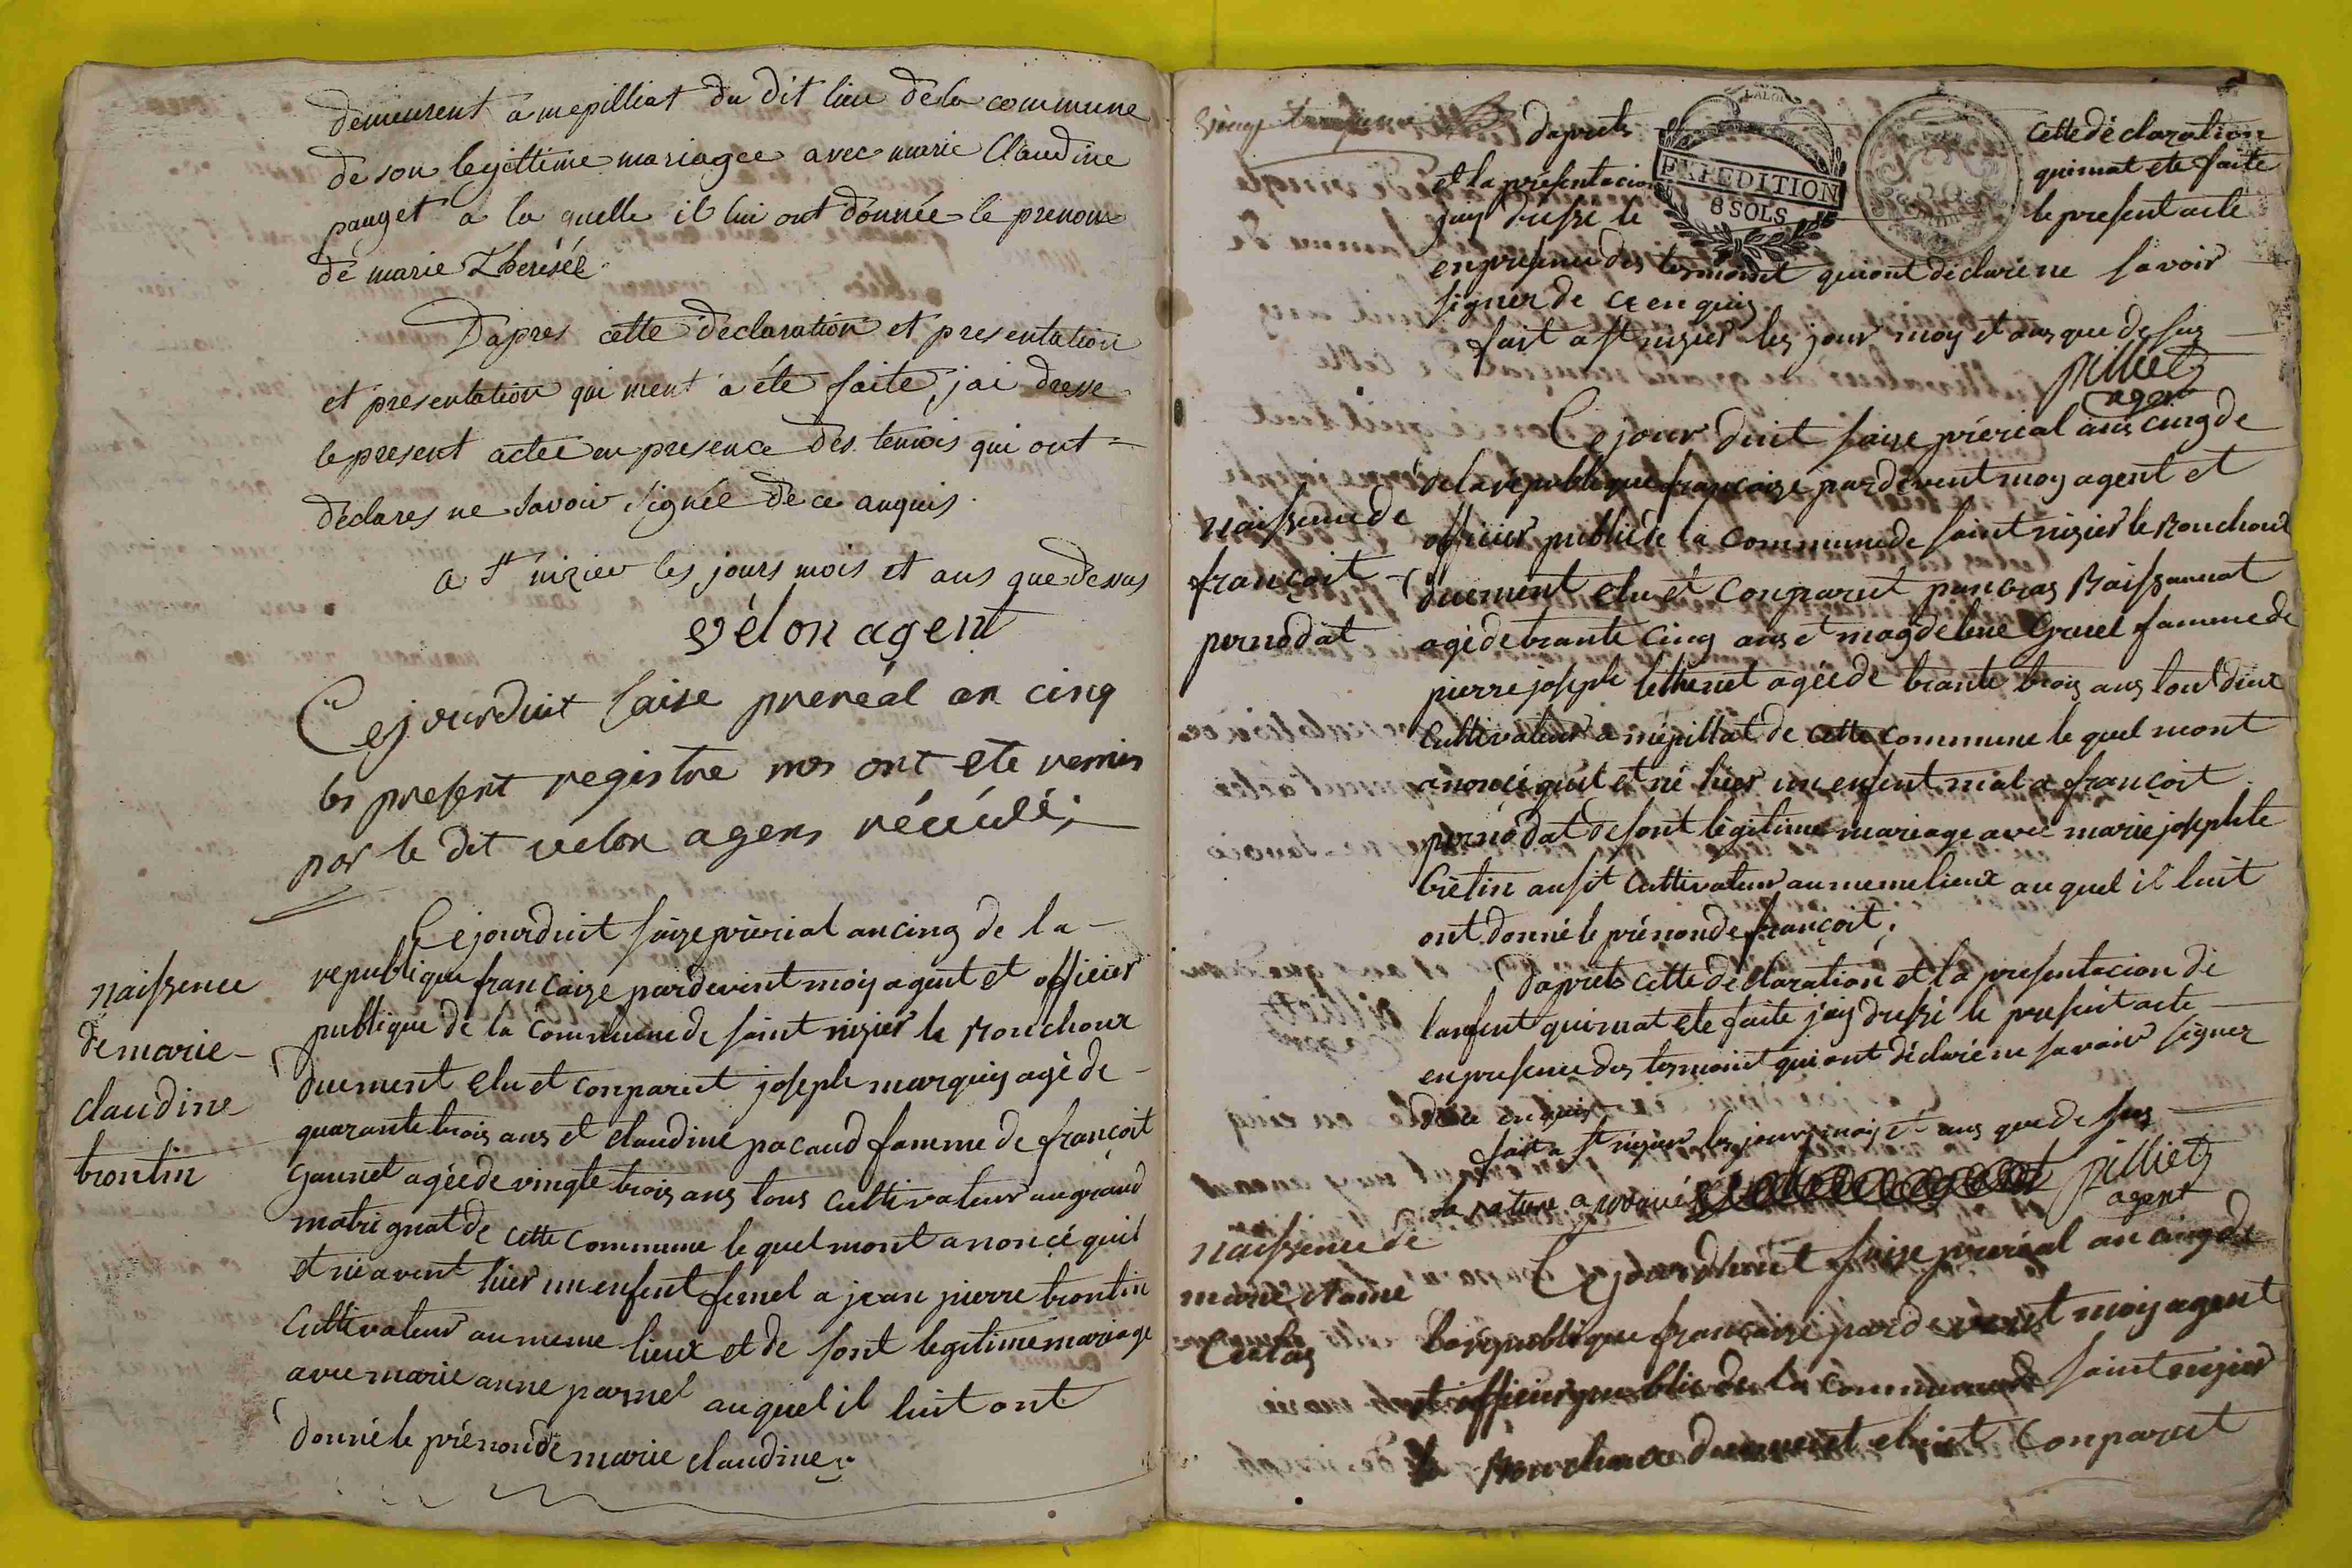 demeurent a mepilliat du dit lieu dela commune
de son legittime mariagee avec marie Claudine
panget a la quelle il lui ont donnée le prenom
de marie Theresée
Dapres cette declaration et presentation
et presentation qui ment a éte faite, j'ai dresse
le present actee en presence des temois qui ont =
declares ne savoir signée de ce anquis.
a St nizier les jours mois et ans que desus
vélon agent
Cejourduit saise preréal an cinq
les present registre nos ont ete remis
par le dit velon agens récéulé;
Cejourduit saize prérial ancinq de la -
naissence
de marie -
claudine
trontin
republique francaize pardevent moy agent et officier
publique de la Commune de saint nizier le Bouchoux
duement elu et Conparut joseph marquis agé de -
quarante trois ans et claudine pacaud famme de françoit
Gaunet agéede vingte trois ans tous Cultivateur au grand
matrignat de cette Commune le quel mont anoncé quil
et né avent hier un enfent femel a jean pierre trontin
Cultivateur au meme lieux et de sont legitime mariage
avec marie anne parnel auquel il luit ont
donné le prénon de marie claudine;
daprets
cette déclaration
et la présentacion
quimat ete faite
jaiy dressé le
le present acte
EXPEDITION
8 SOLS
en presence des temoint quiont déclaré ne savoir
signer de ce enquis
fait a st nizier les jour moy et ans que desus
pilliet
agent
Ce jour duit saize prérial ans cinq de
delarépublique françaize pardevent moy agent et
naissence de
françoit -
pernodat
officier public de la Commune de saint nizier le Bouchoux
duement elu et Conparut pancras Raissannat
agé de trante cinq ans et magdelene Gruel famme de
pierre joseph tethenet agéede trante trois ans tout deux
Cultivateur a mépillat de cette Commune le quel mont
anoncé quil et né hier un enfent mal a françoit
pernodat de sont légitime mariage avec marie josephte
Crétin ausit Cultivateur au meme lieux au quel il luit
ont donné le prénon de françoit;
daprets cette declaration et la presentacion de
lanfent quimat ete faite jaiy dressé le present acte
en presence des temoint qui ont déclaré ne savoir signer
de ce enquis
fait a st nizier les jours moy et ans que de sus
la rature aprouvé
pilliet
agent
naissence de
marie
Cejourdhuit saize preréal an cinq de
larépublique françaize pardevent moiy agent
et officier public de la Commune de saint nizier
le Bouchoux duement elu et Conparut